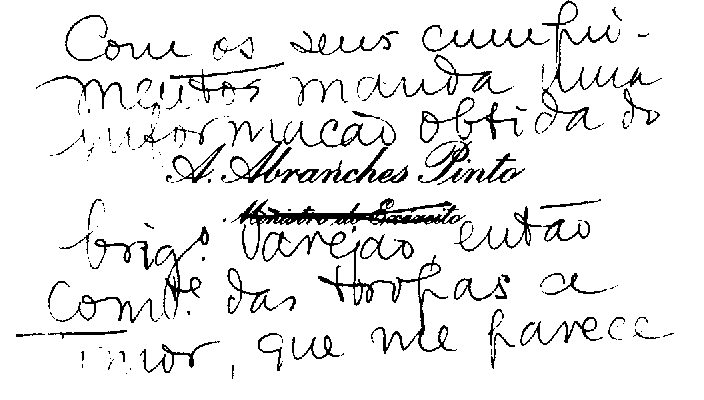 Com os seus cumpri-
mentos manda uma
informação obtida do
A. Abranches Pinto
Ministro do Exército
brig.º Varejão, então
Comte. das tropas a
que me parece